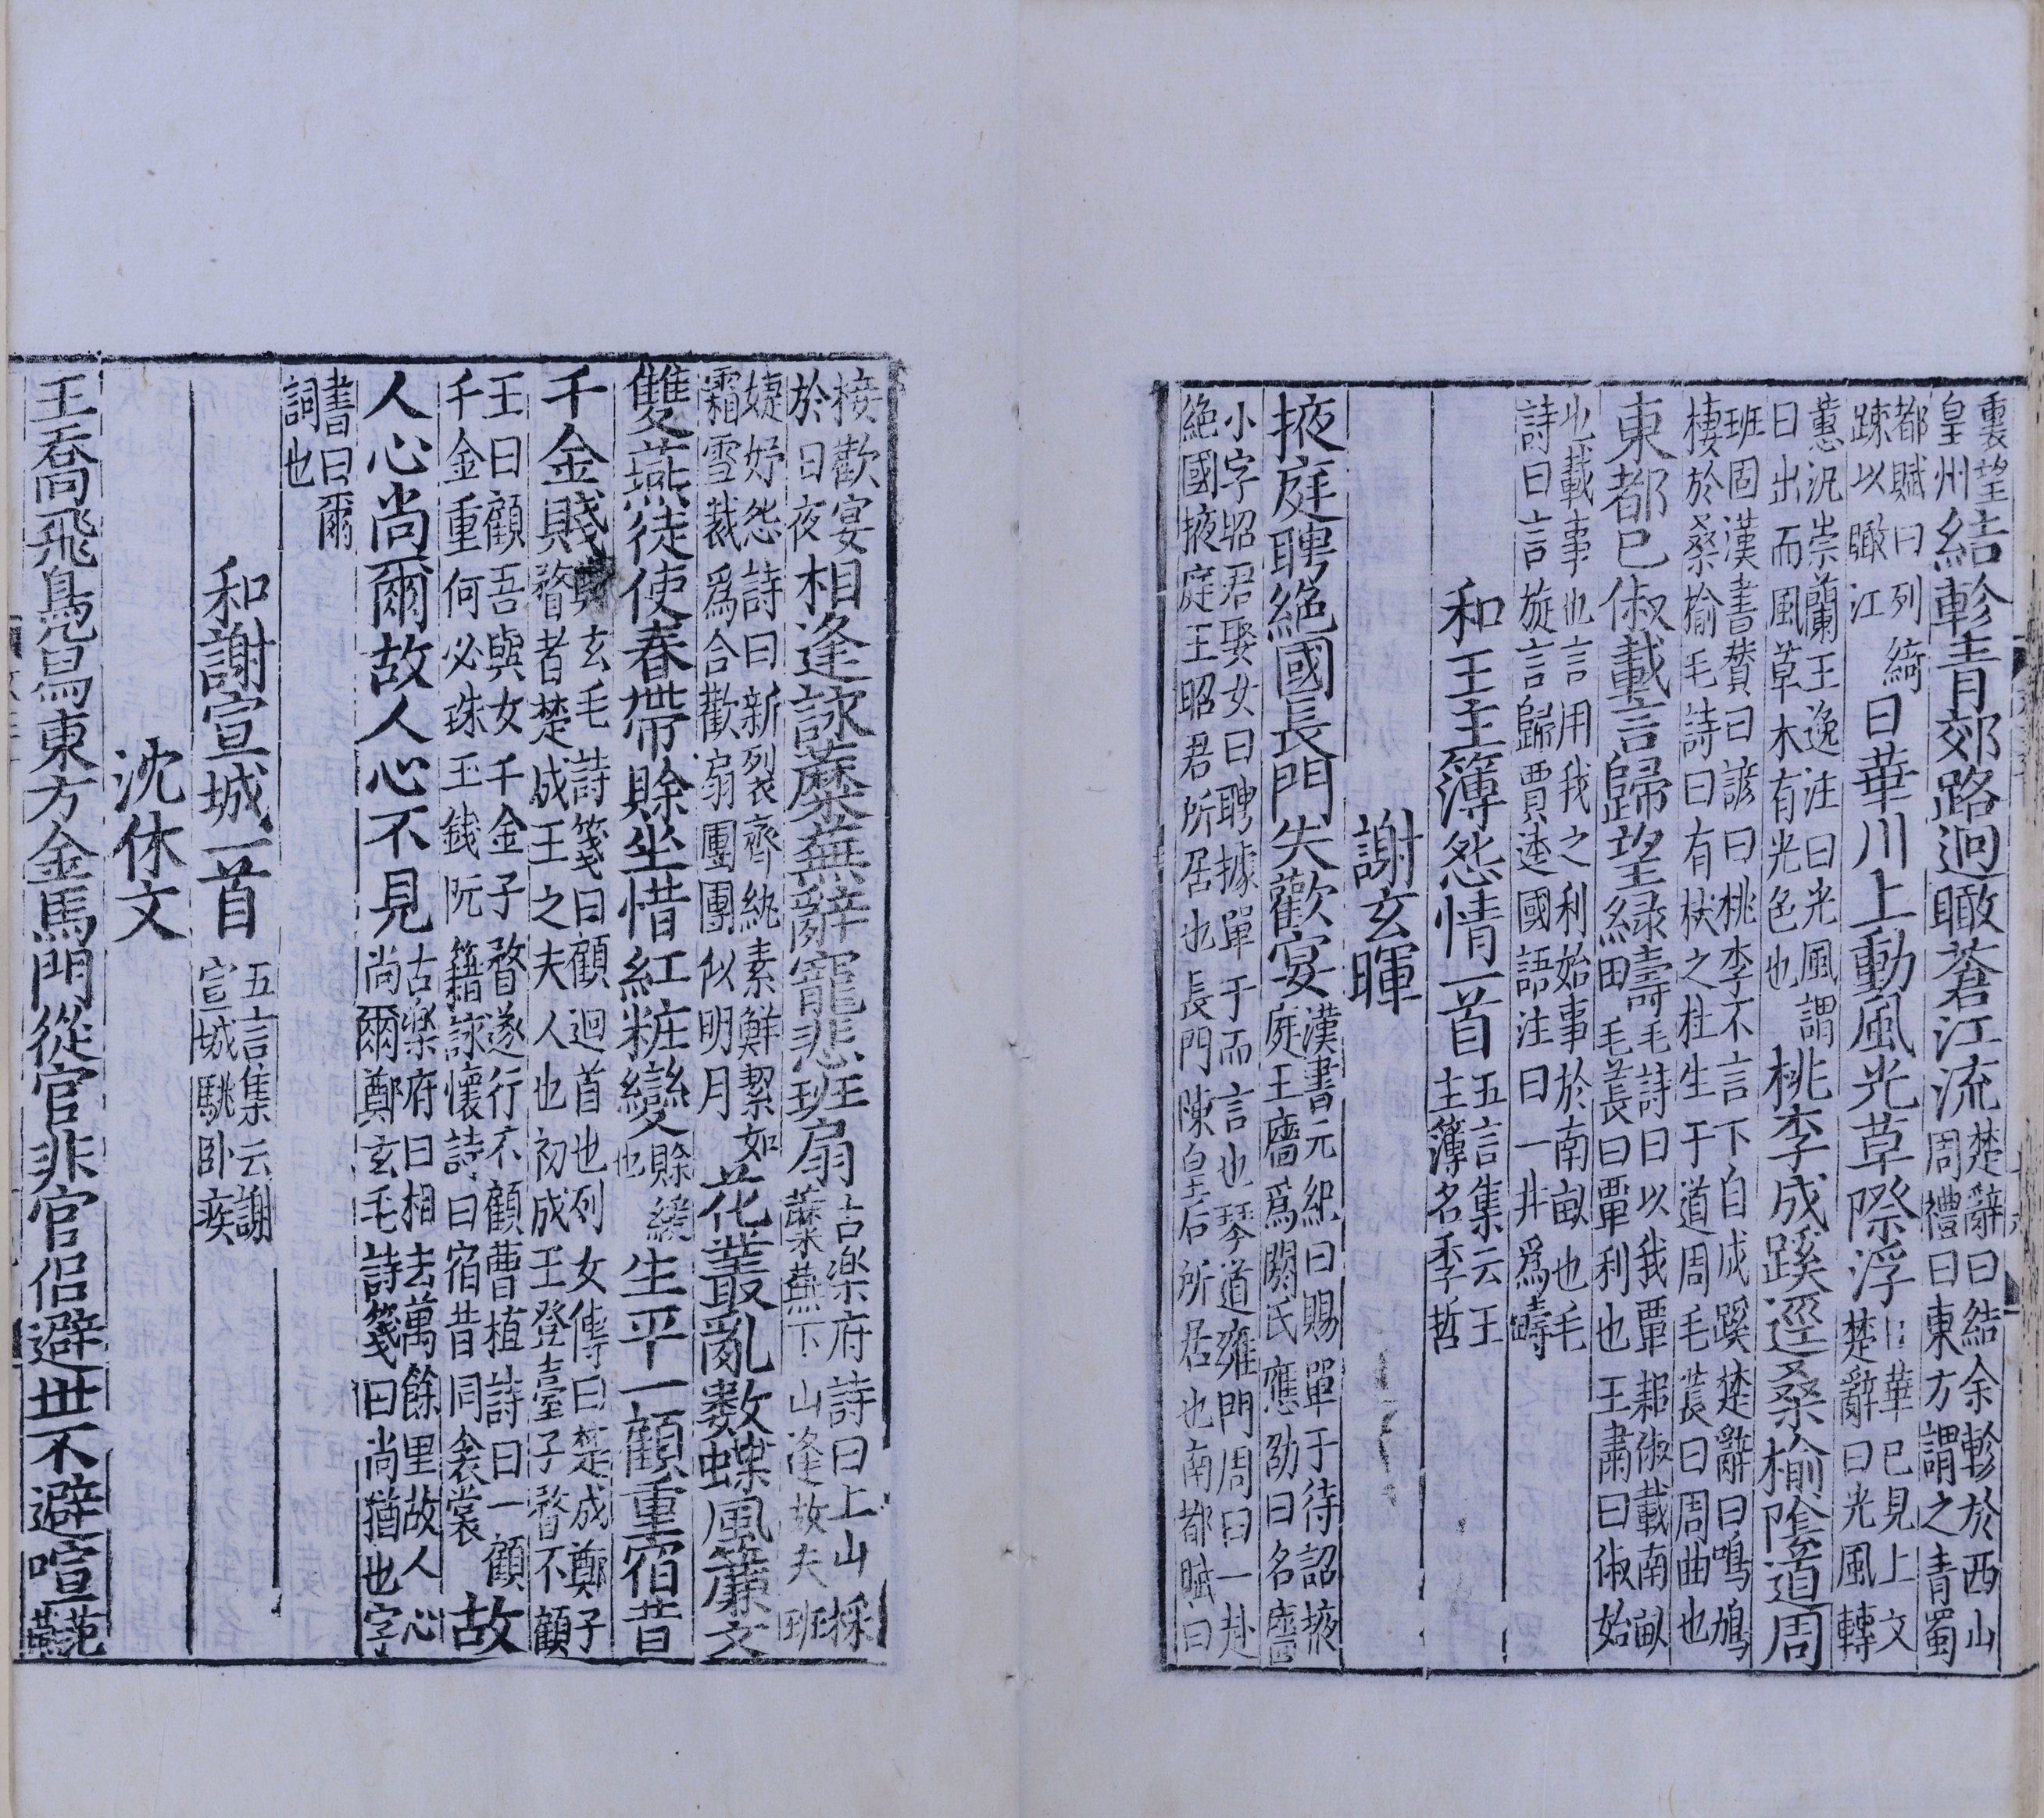 重裏望皇州結軫青郊路迥瞰蒼江流楚辭曰結余軫於西山周禮曰東方謂之青蜀
都賦曰列綺踈以瞰江日華川上動風光草際浮日華已見上文楚辭曰光風轉
蕙汎崇蘭王逸注曰光風謂日出而風草木有光色也桃李成蹊逕桑榆陰道周
班固漢書賛曰諺曰桃李不言下自成蹊楚辭曰鳴鳩棲於桑榆毛詩曰有杕之杜生于道周毛萇曰周曲也
東都已俶載言歸望緑疇毛詩曰以我覃耜俶載南畝毛萇曰覃利也王肅曰俶始
也載事也言用我之利始事於南畝也毛詩曰言旋言歸賈逵國語注曰一井爲疇
和王主簿怨情一首五言集云王主簿名季哲
謝玄暉
掖庭聘絶國長門失歡宴漢書元紀曰賜單于待詔掖庭王廧爲閼氏應劭曰名廧
小字昭君娶女曰聘據單于而言也琴道雍門周曰一赴絶國掖庭王昭君所居也長門陳皇后所居也南都賦曰
接歡宴於日夜相逢詠蘪蕪辭寵悲班扇古樂府詩曰上山採蘪蕪下山逢故夫班
婕妤怨詩曰新裂齊紈素鮮絜如霜雪裁爲合歡扇團團似明月花叢亂數蝶風簾入
雙燕徒使春帶賖坐惜紅粧變賖緩也生平一顧重宿昔
千金賤鄭玄毛詩箋曰顧迴首也列女傳曰楚成鄭子瞀者楚成王之夫人也初成王登臺子瞀不顧
王曰顧吾與女千金子瞀遂行不顧曹植詩曰一顧千金重何必珠玉錢阮籍詠懷詩曰宿昔同衾裳故
人心尚爾故人心不見古樂府曰相去萬餘里故人心尚爾鄭玄毛詩箋曰尚猶也字
書曰爾詞也
和謝宣城一首五言集云謝宣城朓卧疾
沈休文
王喬飛鳧舄東方金馬門從官非官侣避世不避喧范蘇